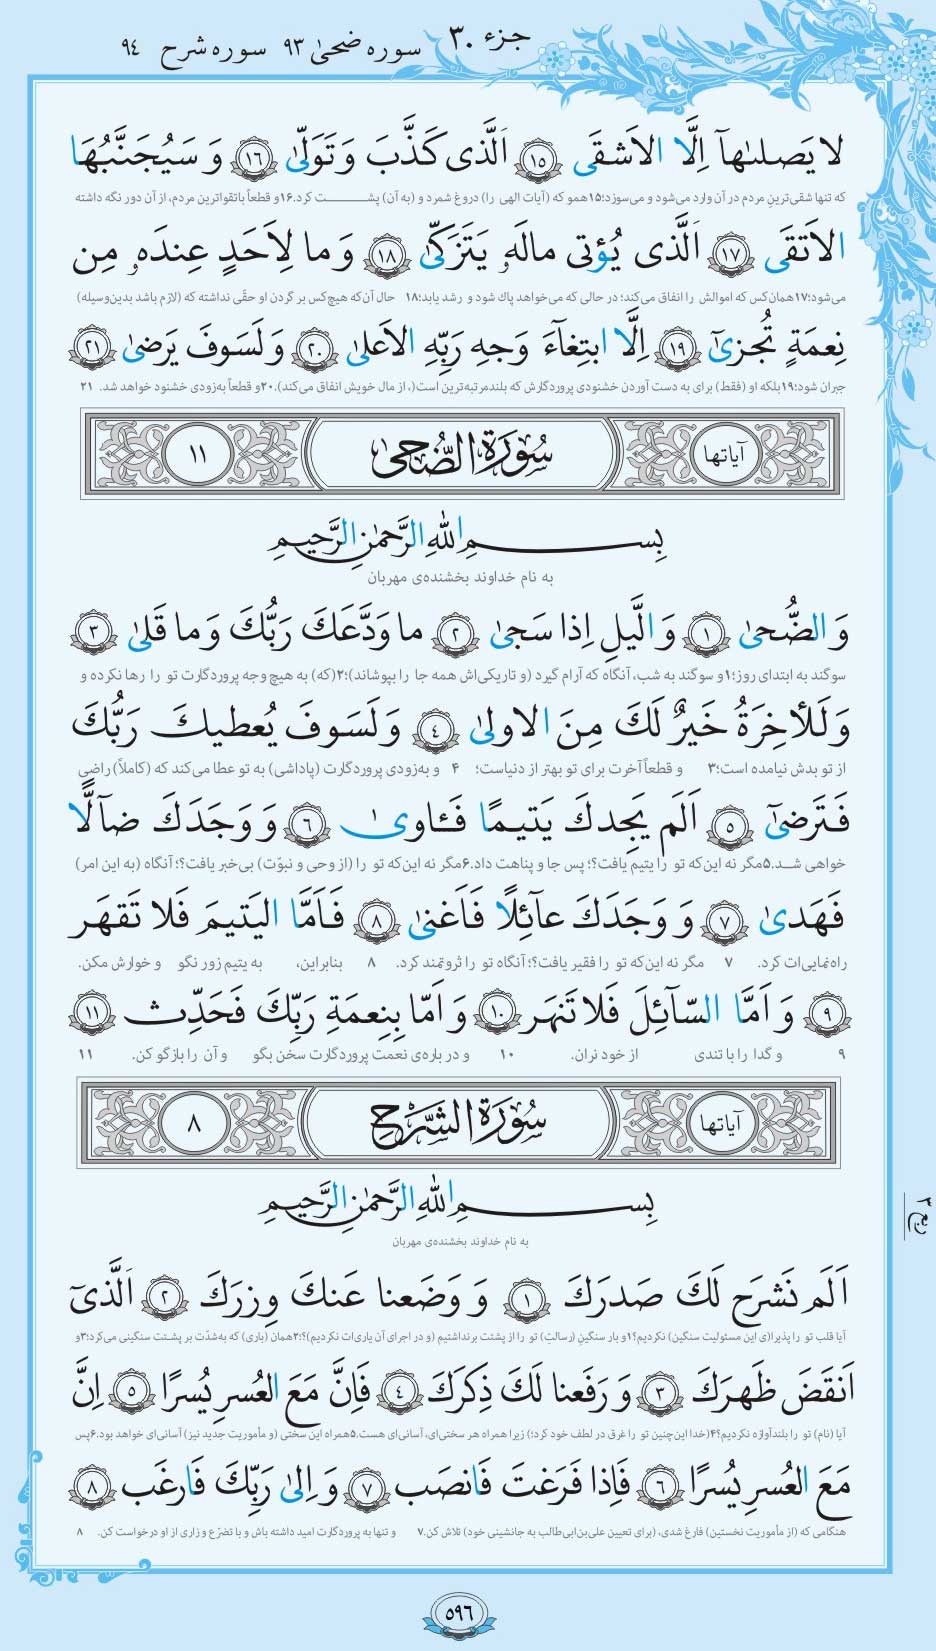 جزء ۳۰ سوره ضحیٰ ۹۳ سوره شرح ۹۴
لا يَصلىٰهآ اِلَّا الاَشقَى ۱۵ اَلَّذى كَذَّبَ وَ تَوَلّىٰ ۱۶ وَ سَيُجَنَّبُهَا
که تنها شقی‌ترین مردم در آن وارد می‌شود و می‌سوزد؛۱۵همو که (آیات الهی را) دروغ شمرد و (به آن) پشت کرد.۱۶و قطعاً باتقواترین مردم، از آن دور نگه داشته
الاَتقَى ۱۷ اَلَّذى يُؤتى مالَهۥ يَتَزَكّىٰ ۱۸ وَ ما لِاَحَدٍ عِندَهۥ مِن
می‌شود؛۱۷همان‌کس که اموالش را انفاق می‌کند؛ در حالی که می‌خواهد پاك شود و رشد یابد؛۱۸ حال آن‌که هیچ‌کس بر گردن او حقّی نداشته که (لازم باشد بدین‌وسیله)
نِعمَةٍ تُجزىٰٓ ۱۹ اِلَّا ابتِغآءَ وَجهِ رَبِّهِ الاَعلىٰ ۲۰ وَ لَسَوفَ يَرضىٰ ۲۱
جبران شود؛۱۹بلکه او (فقط) برای به دست آوردن خشنودی پروردگارش که بلندمرتبه‌ترین است(، از مال خویش انفاق می‌کند).۲۰و قطعاً به‌زودی خشنود خواهد شد. ۲۱
آیاتها سُورَةُ الضُّحىٰ ۱۱
بِسمِ اللّٰهِ الرَّحمٰنِ الرَّحيمِ
به نام خداوند بخشنده‌ی مهربان
وَ الضُّحىٰ ۱ وَ الَّيلِ اِذا سَجىٰ ۲ ما وَدَّعَكَ رَبُّكَ وَ ما قَلىٰ ۳
سوگند به ابتدای روز؛۱و سوگند به شب، آنگاه که آرام گیرد (و تاریکی‌اش همه جا را بپوشاند)؛۲(که) به هیچ وجه پروردگارت تو را رها نکرده و
وَ لَلأخِرَةُ خَيرٌ لَكَ مِنَ الاولىٰ ۴ وَ لَسَوفَ يُعطيكَ رَبُّكَ
از تو بدش نیامده است؛۳ و قطعاً آخرت برای تو بهتر از دنیاست؛ ۴ و به‌زودی پروردگارت (پاداشی) به تو عطا می‌کند که (کاملاً) راضی
فَتَرضىٰٓ ۵ اَلَم يَجِدكَ يَتيمًا فَـئاوىٰ ۶ وَ وَجَدَكَ ضآلًّا
خواهی شد.۵مگر نه این‌که تو را یتیم یافت؟؛ پس جا و پناهت داد.۶مگر نه این‌که تو را (از وحی و نبوّت) بی‌خبر یافت؟؛ آنگاه (به این امر)
فَهَدىٰ ۷ وَ وَجَدَكَ عآئِلًا فَاَغنىٰ ۸ فَاَمَّا اليَتيمَ فَلا تَقهَر
راه‌نمایی‌ات کرد. ۷ مگر نه این‌که تو را فقیر یافت؟؛ آنگاه تو را ثروتمند کرد. ۸ بنابراین، به یتیم زور نگو و خوارش مکن.
۹ وَ اَمَّا السّآئِلَ فَلا تَنهَر ۱۰ وَ اَمّا بِنِعمَةِ رَبِّكَ فَحَدِّث ۱۱
۹ و گدا را با تندی از خود نران. ۱۰ و درباره‌ی نعمت پروردگارت سخن بگو و آن را بازگو کن. ۱۱
آیاتها سُورَةُ الشَّرح ۸
بِسمِ اللّٰهِ الرَّحمٰنِ الرَّحيمِ
به نام خداوند بخشنده‌ی مهربان
اَلَم نَشرَح لَكَ صَدرَكَ ۱ وَ وَضَعنا عَنكَ وِزرَكَ ۲ اَلَّذىٓ
آیا قلب تو را پذیرا(ی این مسئولیت سنگین) نکردیم؟۱و بار سنگین (رسالتِ) تو را از پشتت برنداشتیم (و در اجرای آن یاری‌ات نکردیم)؟؛۲همان (باری) که به‌شدّت بر پشتت سنگینی می‌کرد؛۳و
اَنقَضَ ظَهرَكَ ۳ وَ رَفَعنا لَكَ ذِكرَكَ ۴ فَاِنَّ مَعَ العُسرِ يُسرًا ۵ اِنَّ
آیا (نام) تو را بلندآوازه نکردیم؟۴(خدا این‌چنین تو را غرق در لطف خود کرد؛) زیرا همراه هر سختی‌ای، آسانی‌ای هست.۵همراه این سختی (و مأموریت جدید نیز) آسانی‌ای خواهد بود.۶پس
مَعَ العُسرِ يُسرًا ۶ فَاِذا فَرَغتَ فَانصَب ۷ وَ اِلىٰ رَبِّكَ فَارغَب ۸
هنگامی که (از مأموریت نخستین) فارغ شدی، (برای تعیین علی‌بن‌ابی‌طالب به جانشینی خود) تلاش کن.۷ و تنها به پروردگارت امید داشته باش و با تضرّع و زاری از او درخواست کن. ۸
ربع ۳
۵۹۶